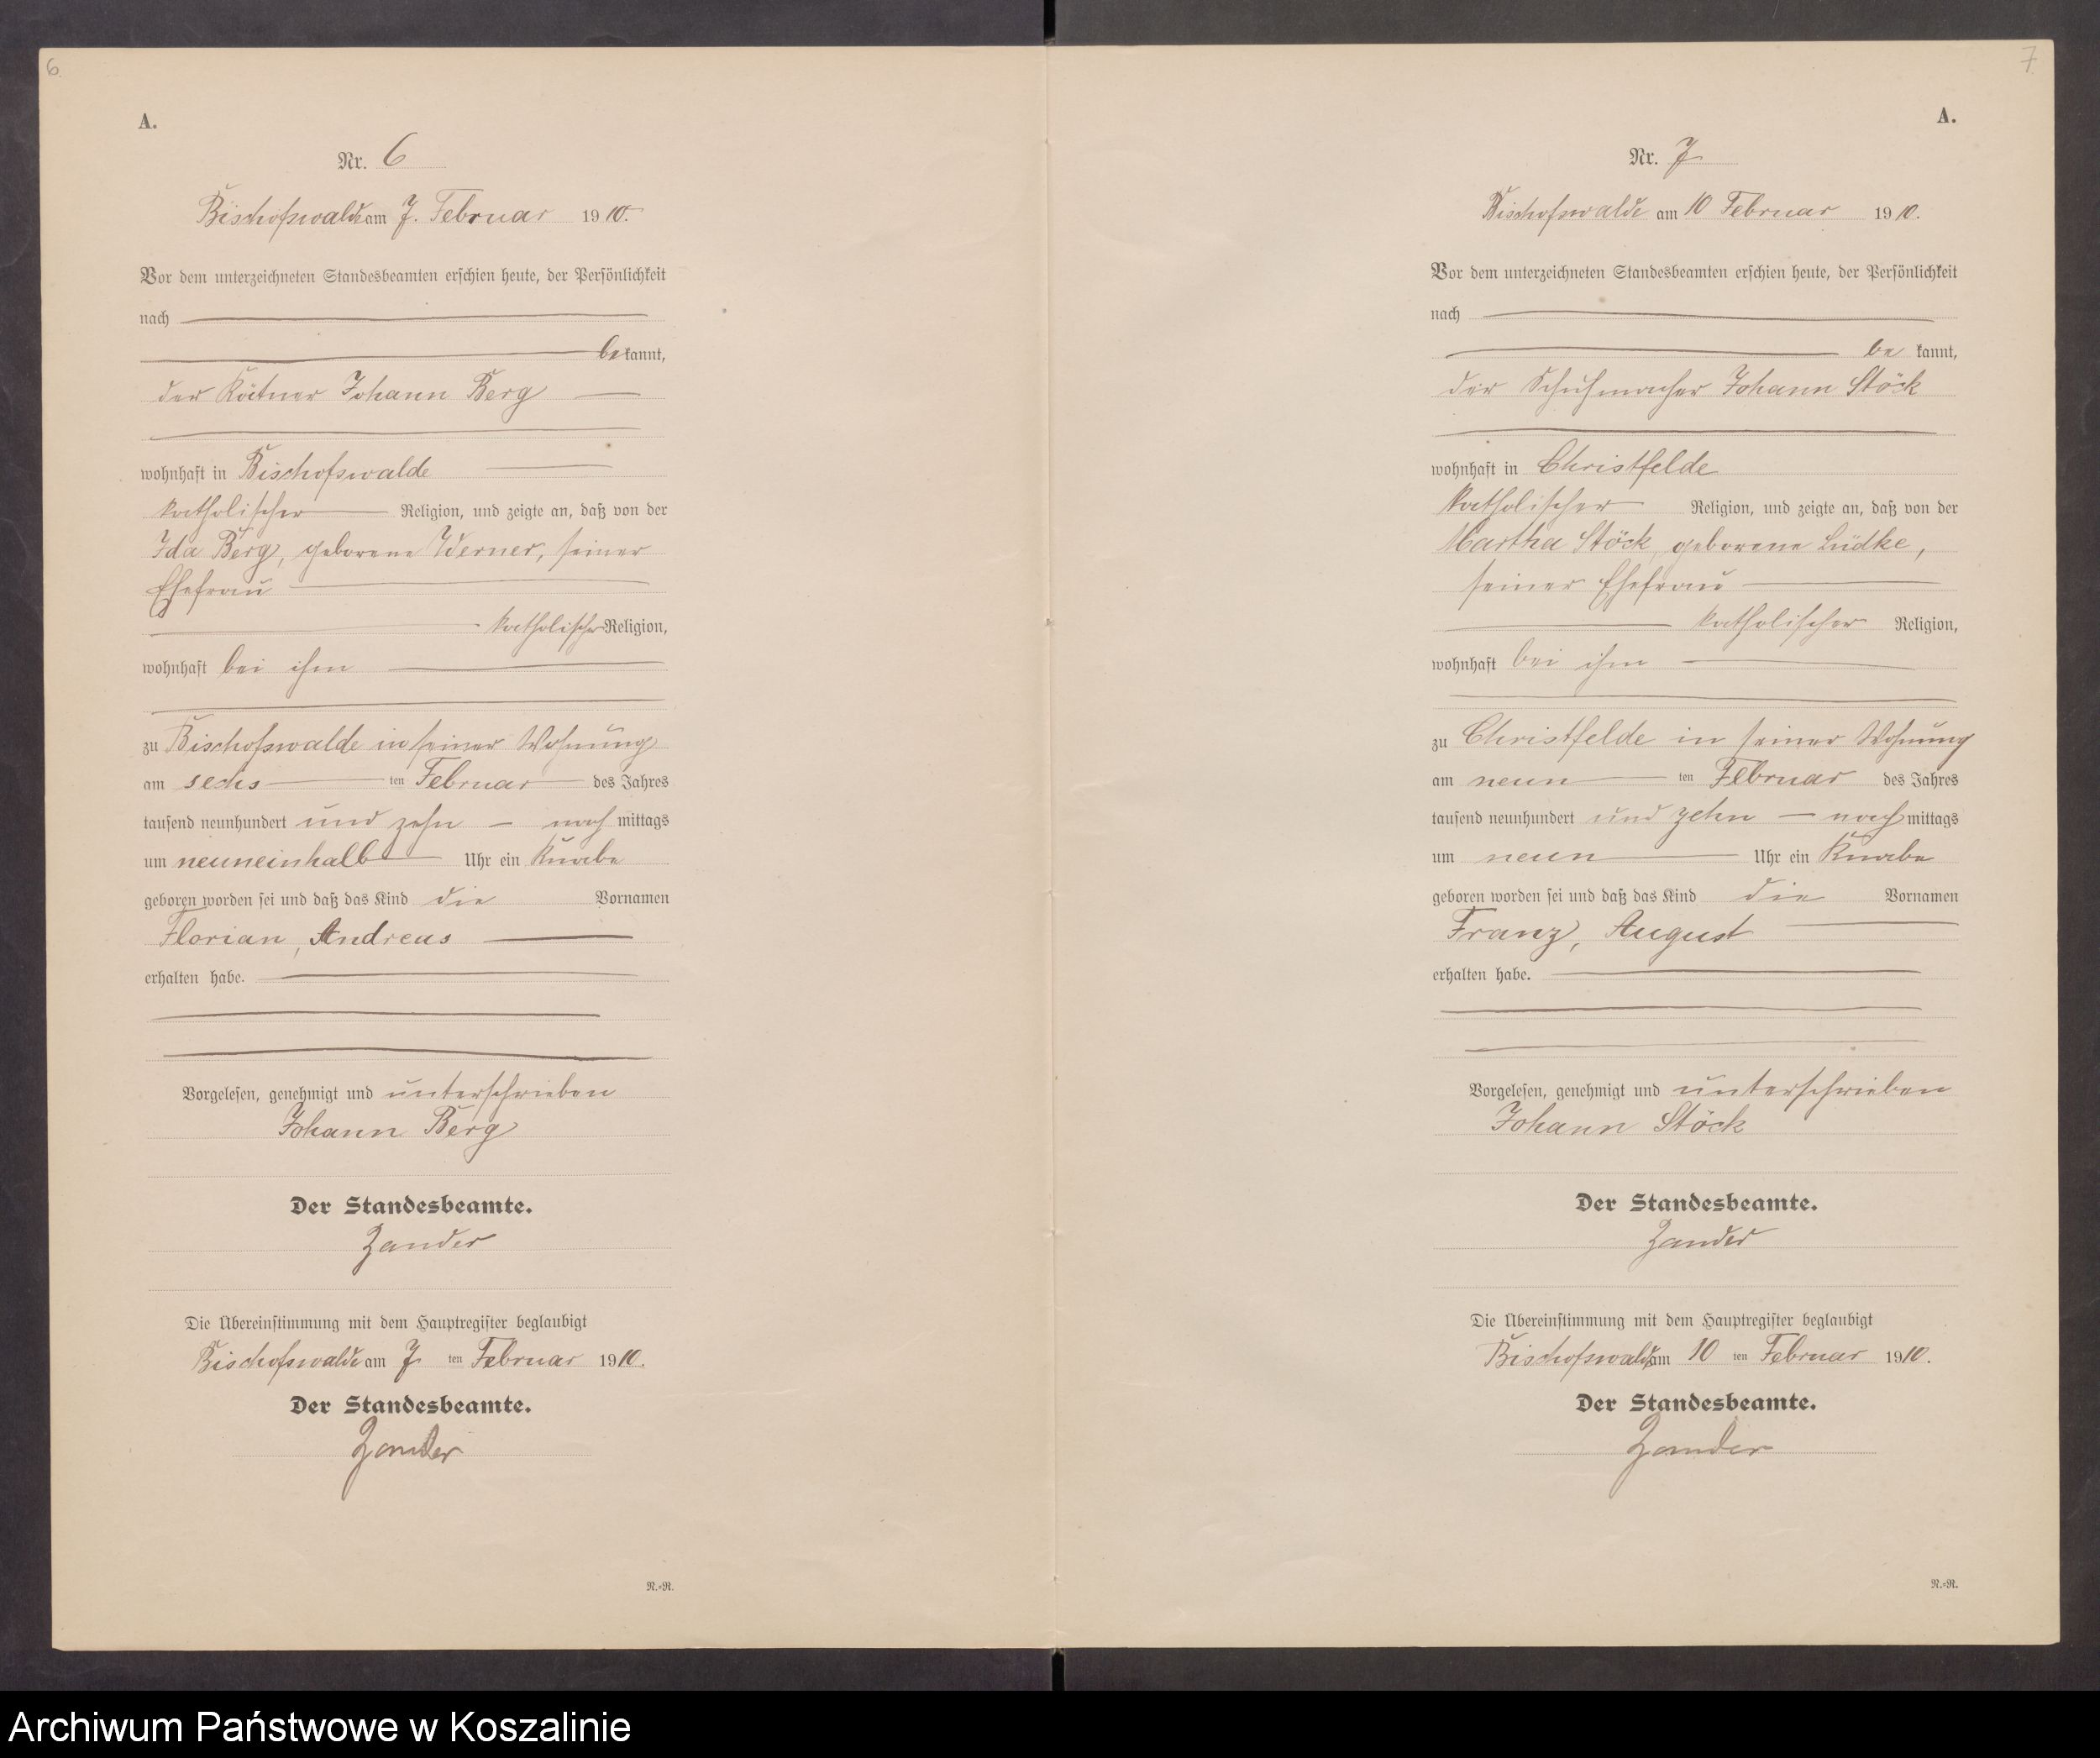 6.
A.
Nr. 6
Bischofswalde am 7. Februar 1910.
Vor dem unterzeichneten Standesbeamten erschien heute, der Persönlichkeit
nach
bekannt,
der Kätner Johann Berg
wohnhaft in Bischofswalde
katholischer Religion, und zeigte an, daß von der
Ida Berg, geborene Werner, seiner
Ehefrau
katholischer Religion,
wohnhaft bei ihm
zu Bischofswalde in seiner Wohnung
am sechsten Februar des Jahres
tausend neunhundert und zehn nachmittags
um neuneinhalb Uhr ein Knabe
geboren worden sei und daß das Kind die Vornamen
Florian, Andreas
erhalten habe.
Vorgelesen, genehmigt und unterschrieben
Johann Berg
Der Standesbeamte.
Zander
Die Übereinstimmung mit dem Hauptregister beglaubigt
Bischofswalde am 7ten Februar 1910.
Der Standesbeamte.
Zander
R.=R.
7
A.
Nr. 7
Bischofswalde am 10 Februar 1910.
Vor dem unterzeichneten Standesbeamten erschien heute, der Persönlichkeit
nach
bekannt,
der Schuhmacher Johann Stöck
wohnhaft in Christfelde
katholischer Religion, und zeigte an, daß von der
Martha Stöck, geborene Lüdke,
seiner Ehefrau
katholischer Religion,
wohnhaft bei ihm
zu Christfelde in seiner Wohnung
am neunten Februar des Jahres
tausend neunhundert und zehn nachmittags
um neun Uhr ein Knabe
geboren worden sei und daß das Kind die Vornamen
Franz, August
erhalten habe.
Vorgelesen, genehmigt und unterschrieben
Johann Stöck
Der Standesbeamte.
Zander
Die Übereinstimmung mit dem Hauptregister beglaubigt
Bischofswalde am 10ten Februar 1910.
Der Standesbeamte.
Zander
R.=R.
Archiwum Państwowe w Koszalinie